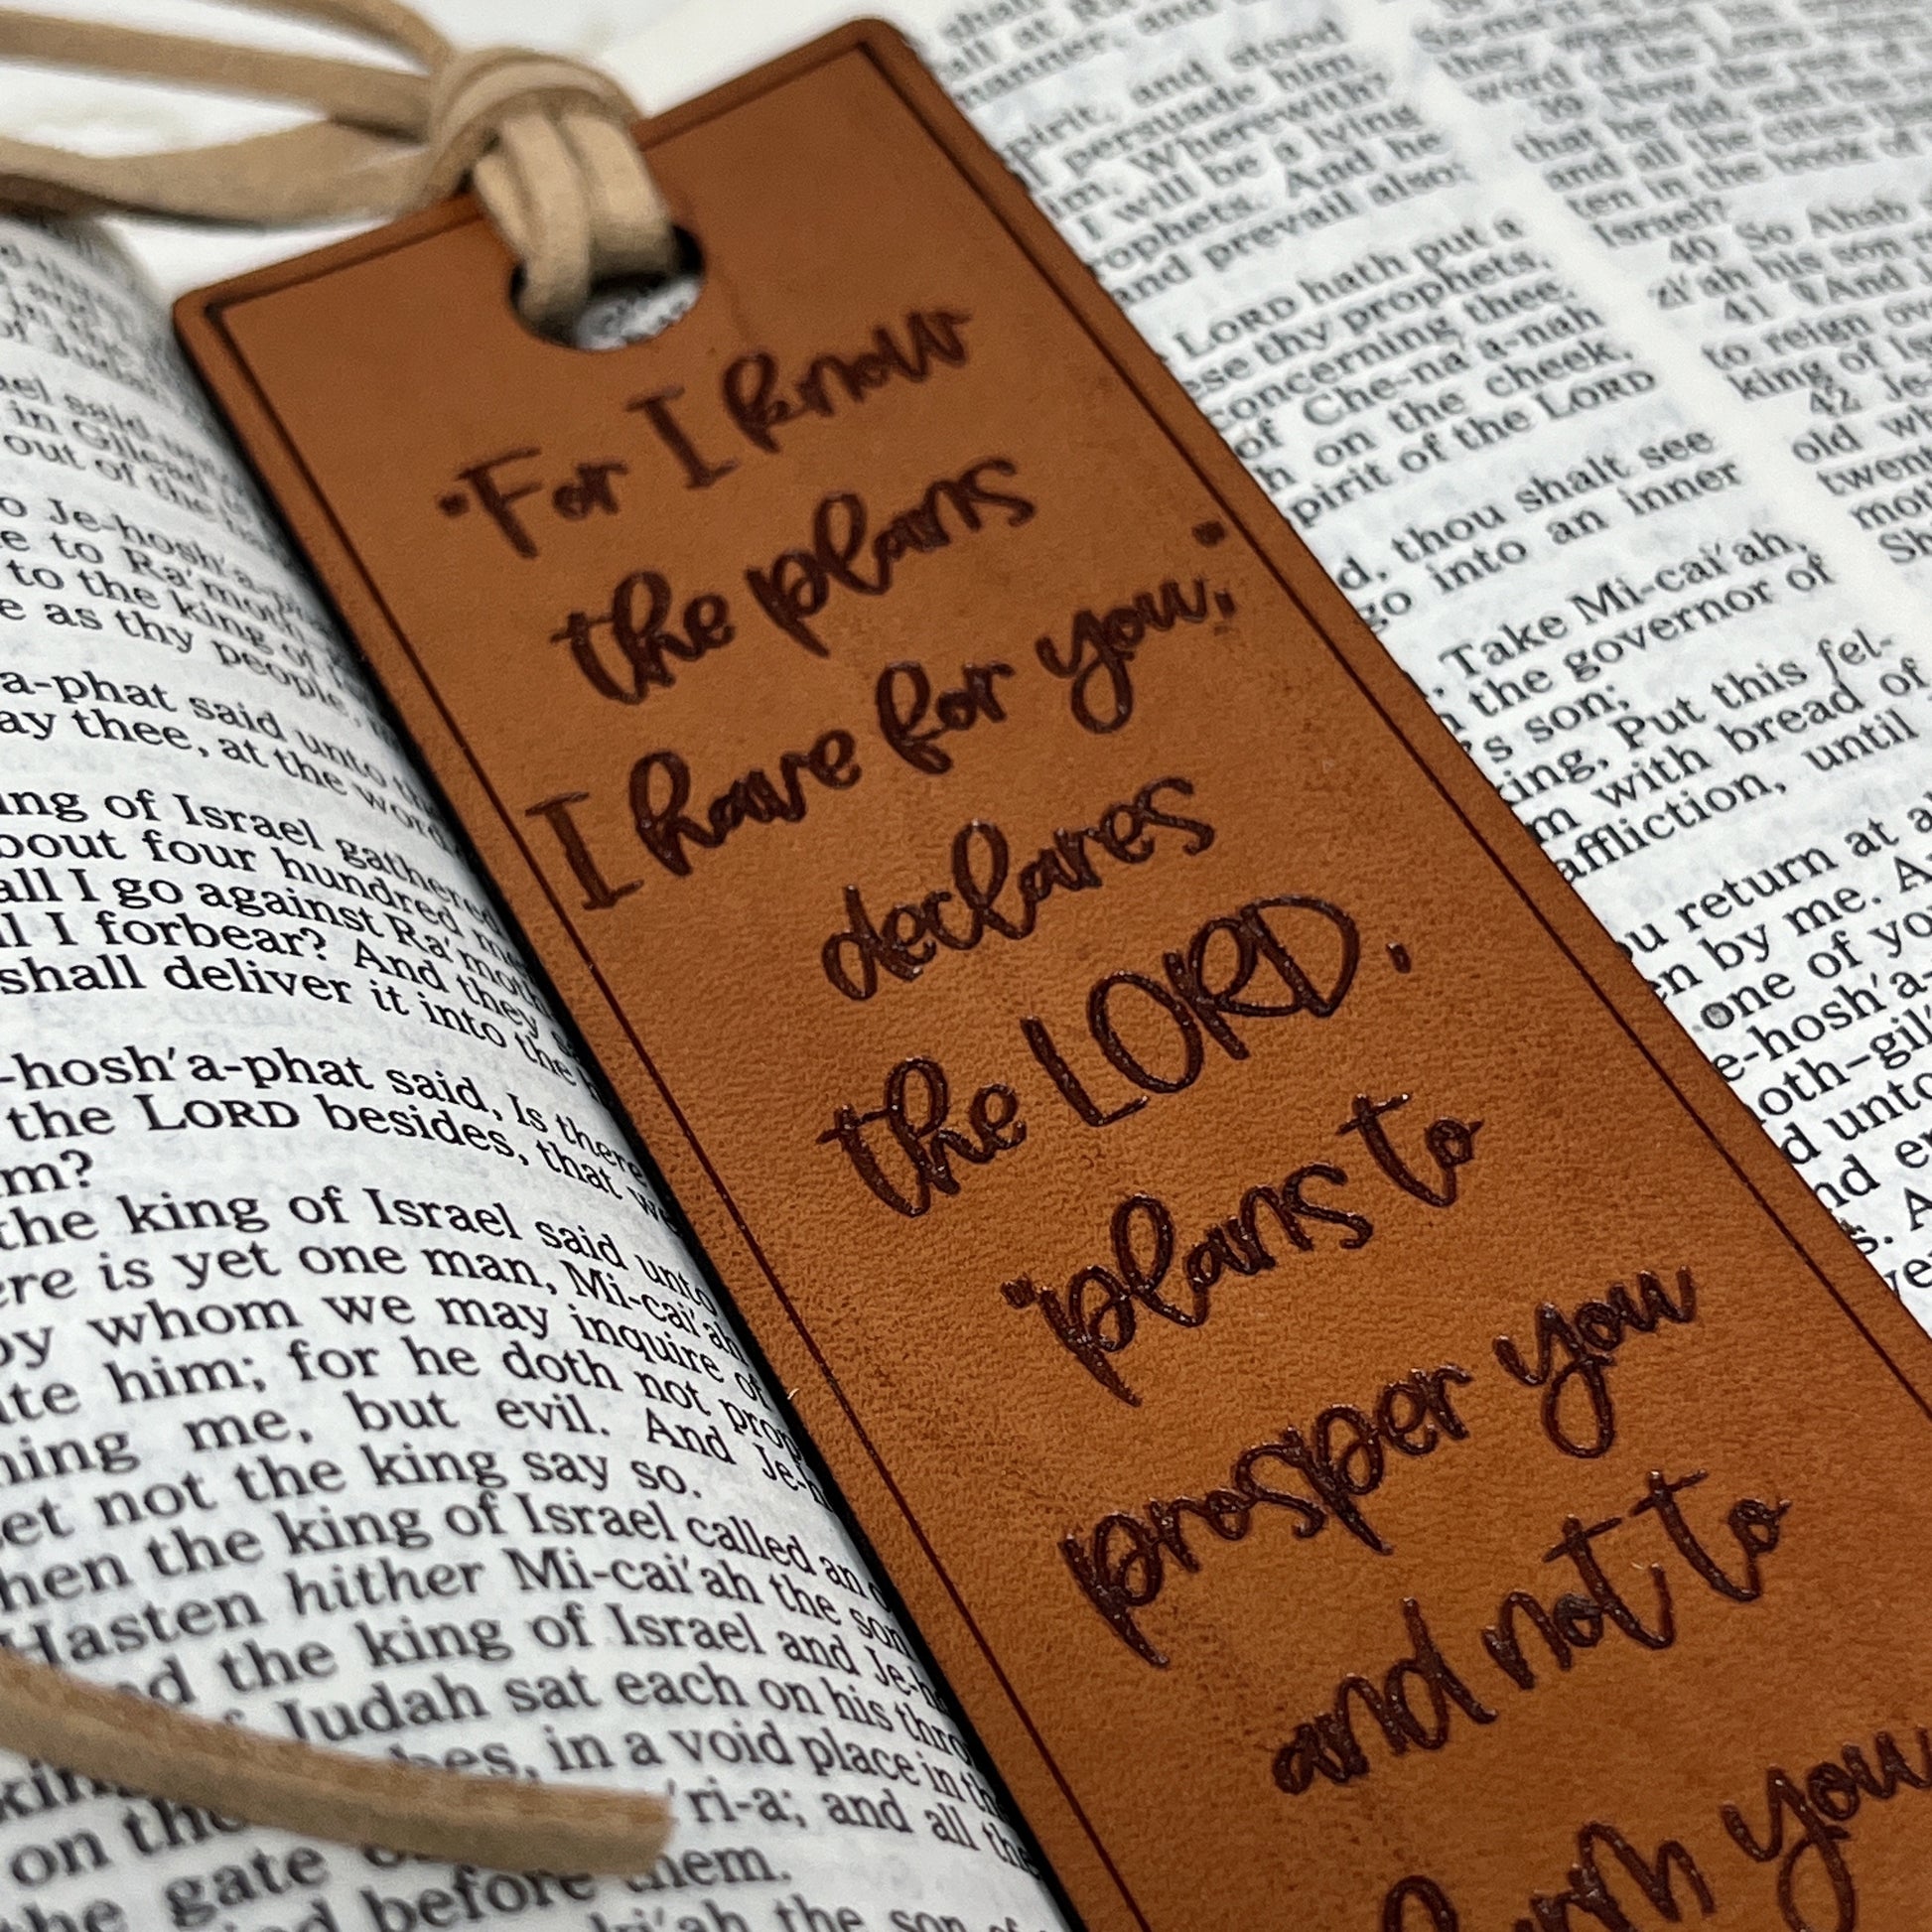 "For I know
the plans
I have for you,"
declares
the LORD,
"plans to
prosper you
and not to
harm you
in Gilead
out of the
o Je-hosh'a-
e to Ra'moth
to the king of
e as thy people,
a-phat said unto
ay thee, at the word
ing of Israel gathered
bout four hundred me
all I go against Ra'moth
ll I forbear? And they s
shall deliver it into the
-hosh'a-phat said, Is there
the LORD besides, that we
m?
the king of Israel said unto
ere is yet one man, Mi-cai'ah
by whom we may inquire of
te him; for he doth not prop
ning me, but evil. And Je-h
et not the king say so.
hen the king of Israel called an
Hasten hither Mi-cai'ah the son
nd the king of Israel and Je-h
Judah sat each on his thro
hes, in a void place in th
on the 'ri-a; and all the
the gate
nd before them.
ki'ah the son of
manner, and
pirit, and stood
persuade him.
m, Wherewith?
I will be a lying
rophets. And he
and prevail also:
LORD hath put a
ese thy prophets,
concerning thee.
of Che-na'a-nah
h on the cheek,
pirit of the LORD
d, thou shalt see
go into an inner
Take Mi-cai'ah,
the governor of
's son;
ing, Put this fel-
m with bread of
affliction, until
ou return at a
en by me. A
one of yo
e-hosh'a-
oth-gil'
d unto
word of the LORD
39 Now the rest of
that he did, and the
and all the cities
ten in the book of
Israel?
40 So Ahab
zi'ah his son
41 ¶And
to reign ov
king of Is
42 Je-
old wh
twen
mot
Sh